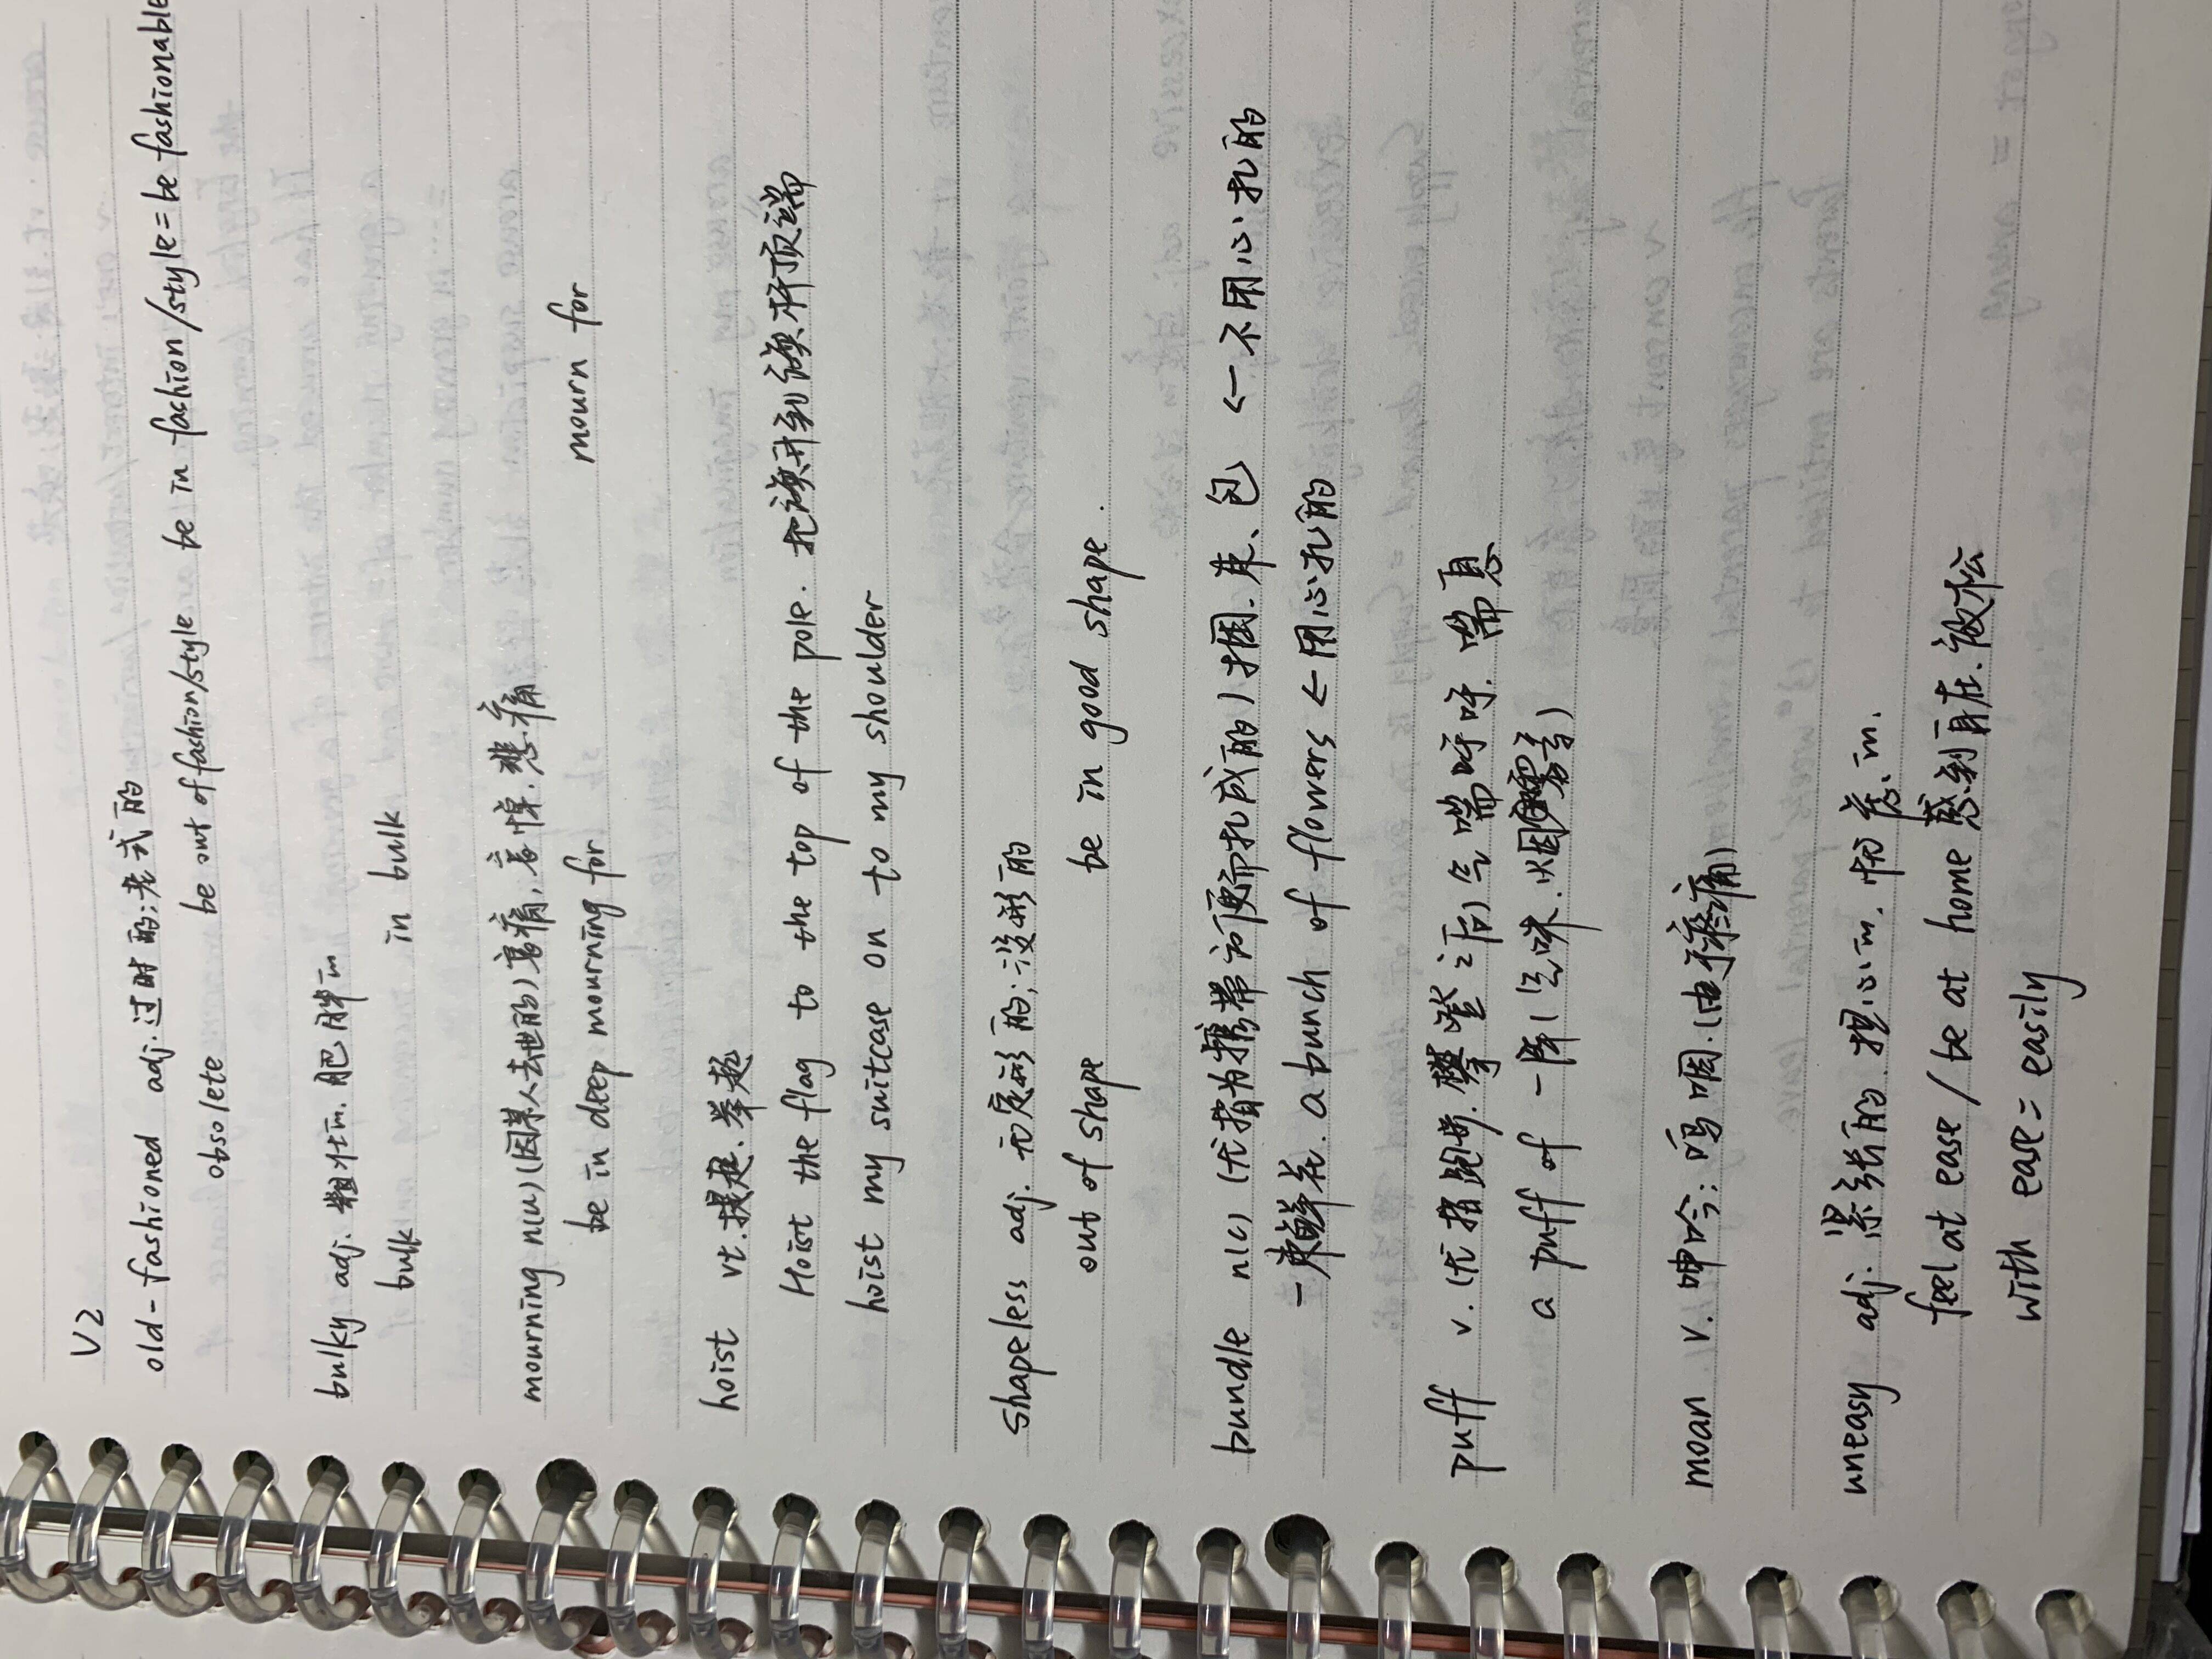 V2
old-fashioned adj.过时的;老式的
obsolete be out of fashion/style be in fashion/style = be fashionable
bulky adj. 粗壮的. 肥胖的
bulk in bulk
mourning n(u) (因某人去世的) 哀痛, 哀悼. 悲痛
be in deep mourning for mourn for
hoist vt.提起. 举起
Hoist the flag to the top of the pole. 把旗升到旗杆顶端
hoist my suitcase on to my shoulder
shapeless adj. 无定形的;没形的
out of shape be in good shape.
bundle n(c) (尤指为携带方便而扎成的) 捆. 束、包 ← 不用心扎的
一束鲜花. a bunch of flowers ← 用心扎的
puff v. (尤指跑步.攀登之后) 气喘呼呼. 喘息
a puff of 一阵 (气味.烟雾等)
moan v. 呻吟; 呜咽. (由疼痛)
uneasy adj. 紧张的. 担心的. 忧虑的.
feel at ease / be at home 感到自在. 放松
with ease = easily